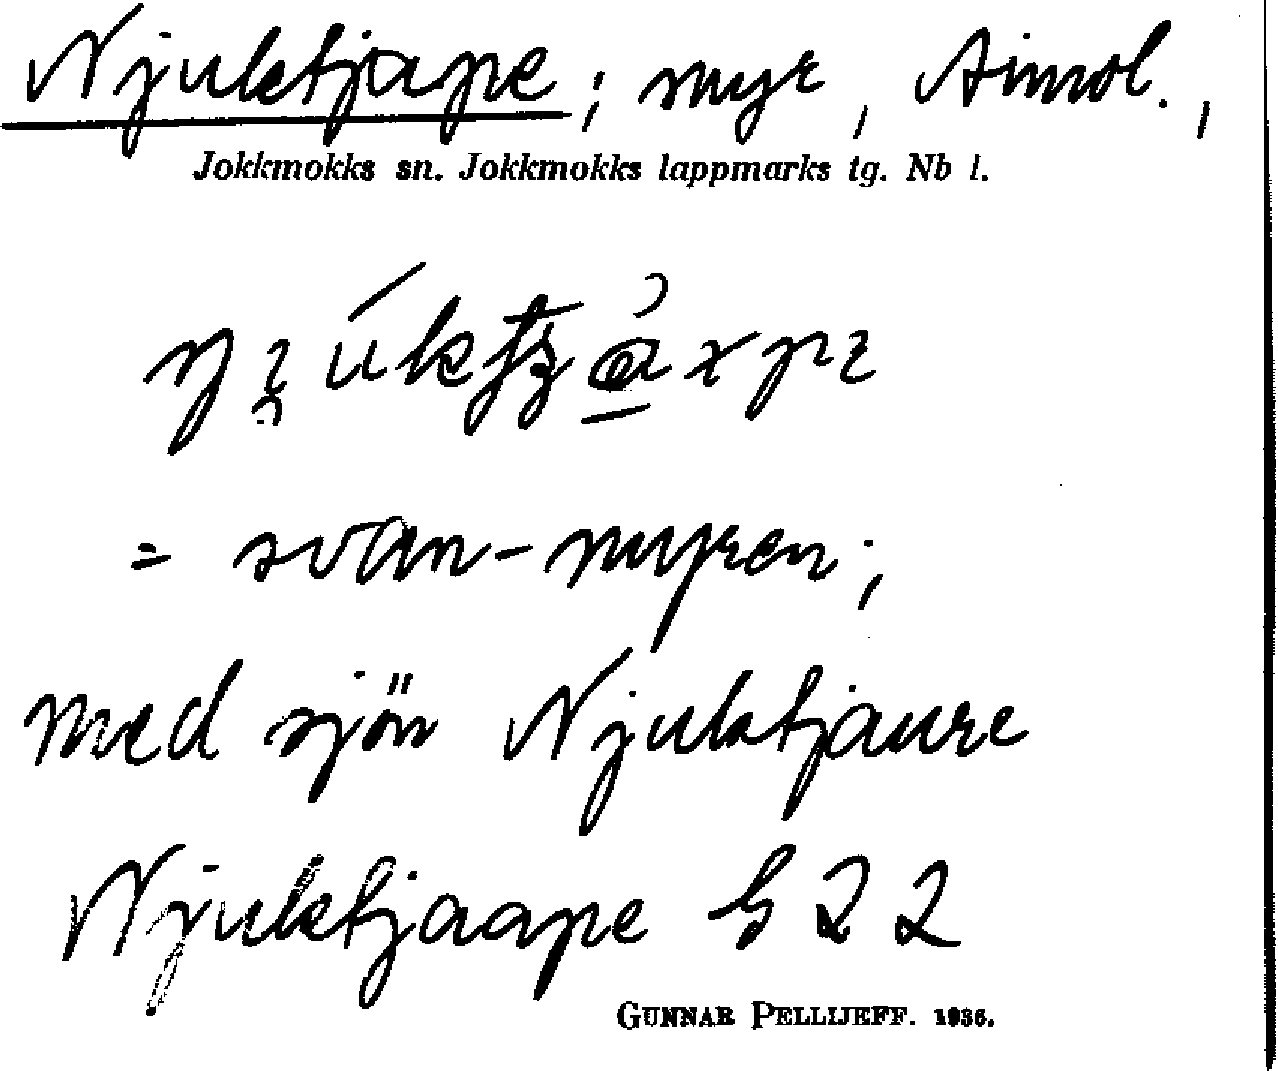 Njuktjape; myr, Aimol.,
Jokkmokks sn. Jokkmokks lappmarks tg. Nb l.
= svan-myren;
med sjön Njuktjaure
Njuktjaape G 22
GUNNAR PELLIJEFF. 1936.